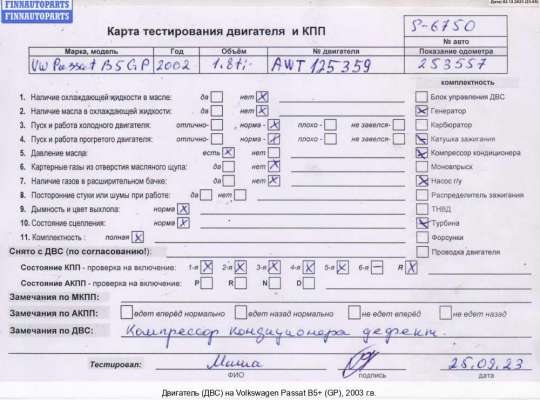 FINNAUTOPARTS
FINNAUTOPARTS
Дата: 02.10.2023 (23:49)
Карта тестирования двигателя и КПП
S-6750
№ авто
Марка, модель Год Объём № двигателя Показание одометра
VW Passat B5 GP 2002 1.8ti AWT 125359 253557
комплектность
1. Наличие охлаждающей жидкости в масле: да нет X Блок управления ДВС
2. Наличие масла в охлаждающей жидкости: да нет X Генератор
3. Пуск и работа холодного двигателя: отлично- норма - X плохо - не завелся- Карбюратор
4. Пуск и работа прогретого двигателя: отлично- норма - X плохо - не завелся- Катушка зажигания
5. Давление масла: есть X нет Компрессор кондиционера
6. Картерные газы из отверстия масляного щупа: да нет X Моновпрыск
7. Наличие газов в расширительном бачке: да нет X Насос г/у
8. Посторонние стуки или шумы при работе: да нет Распределитель зажигания
9. Дымность и цвет выхлопа: норма X ТНВД
10. Состояние сцепления: норма X Турбина
11. Комплектность : полная X Форсунки
Снято с ДВС (по согласованию!): Проводка двигателя
Состояние КПП - проверка на включение: 1-я X 2-я X 3-я X 4-я X 5-я X 6-я — R X
Состояние АКПП - проверка на включение: P R N D
Замечания по МКПП:
Замечания по АКПП: едет вперёд нормально едет назад нормально не едет вперёд не едет назад
Замечания по ДВС: Компрессор кондиционера дефект.
Тестировал: Миша 25.09.23
ФИО подпись дата
Двигатель (ДВС) на Volkswagen Passat B5+ (GP), 2003 г.в.